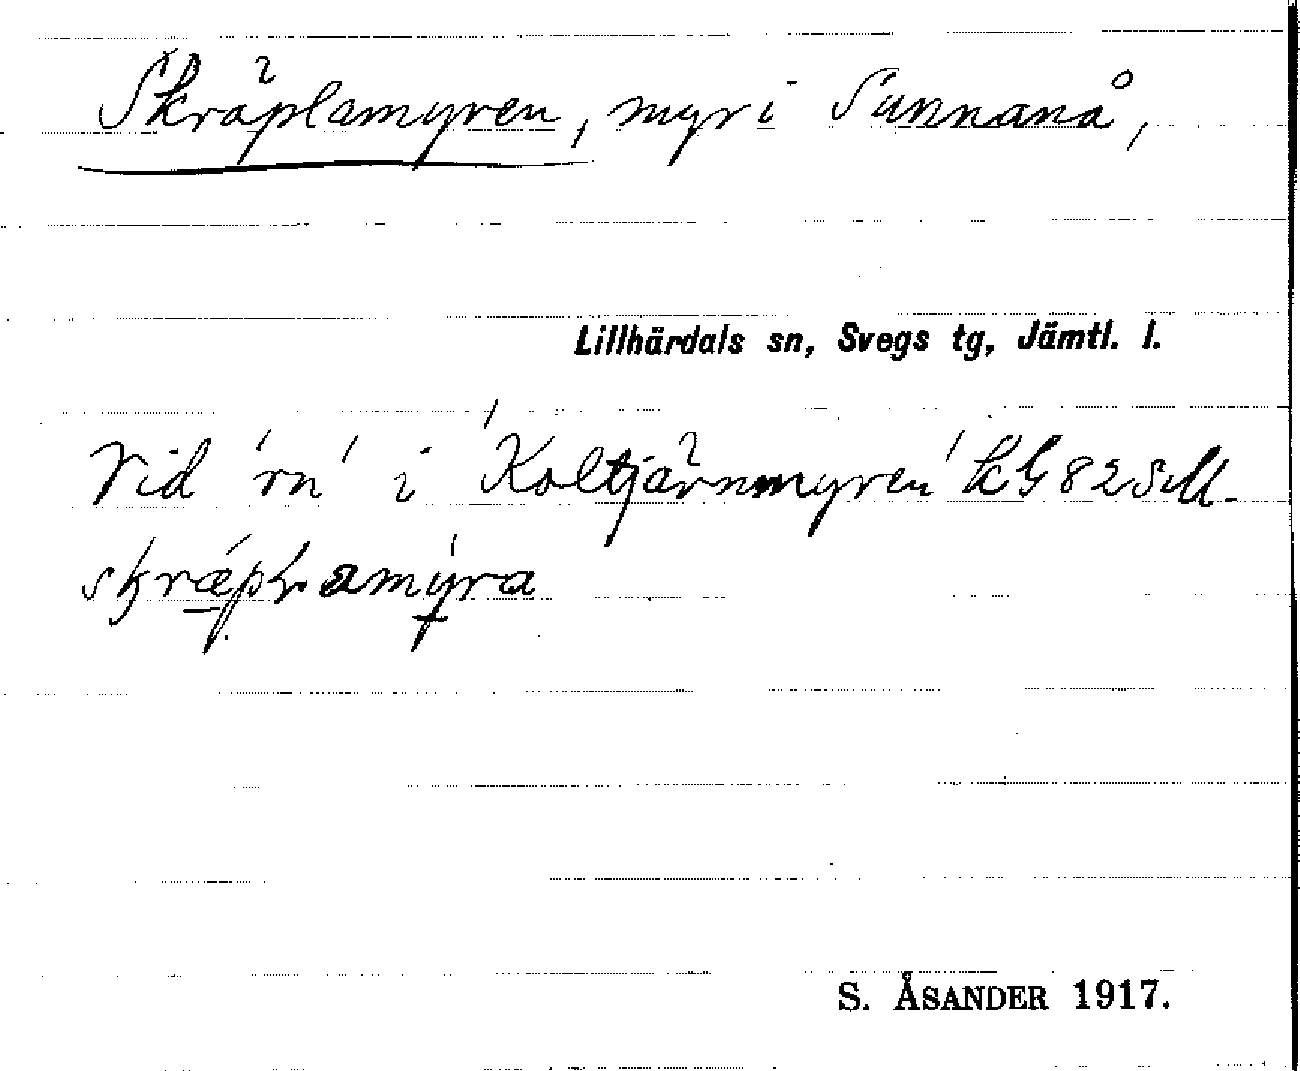 Skräplamyren, myr i Sunnanå,
Lillhärdals sn, Svegs tg, Jämtl. l.
Vid 'rn' i 'Koltjärnmyren' LG 82 SM.
skræplamyra
S. ÅSANDER 1917.